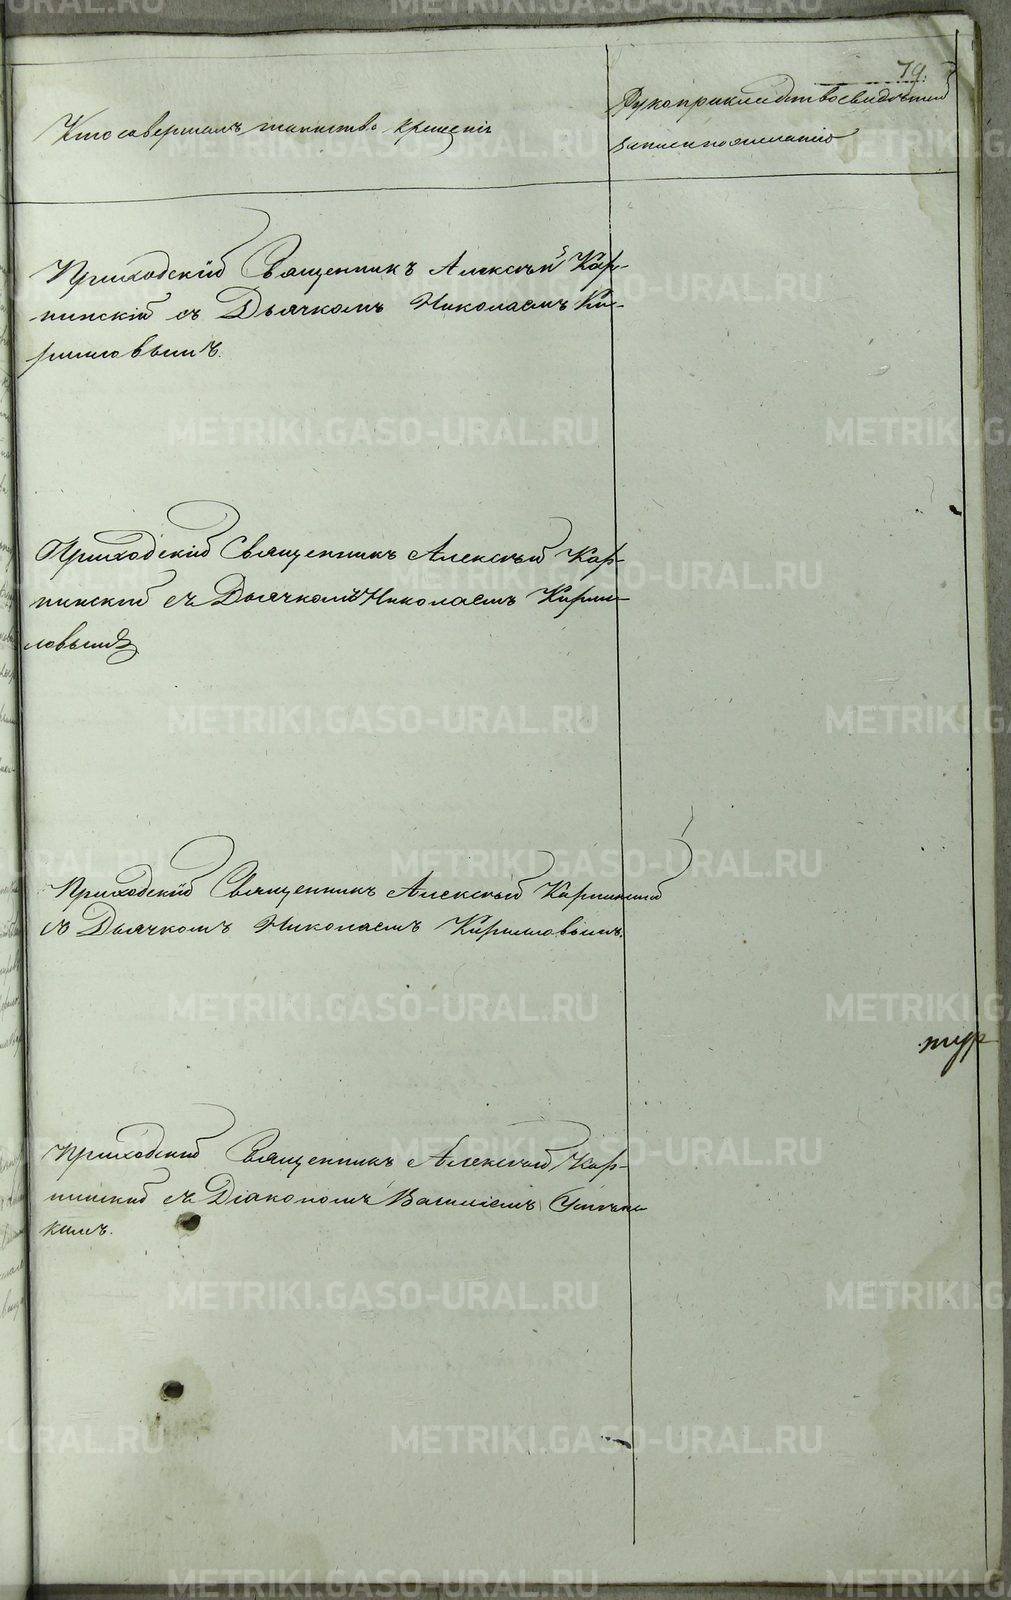 79.
Кто совершалъ таинство крещенія
Рукоприкладство свидѣтелей
записи по желанію
Приходскій Священникъ Алексѣй Кар-
пинскій съ Дьячкомъ Николаемъ Ки-
рилловымъ.
Приходскій Священникъ Алексѣй Кар-
пинскій съ Дьячкомъ Николаемъ Кирил-
ловымъ
Приходскій Священникъ Алексѣй Карпинскій
съ Дьячкомъ Николаемъ Кирилловымъ.
Приходскій Священникъ Алексѣй Кар-
пинскій съ Діакономъ Василіемъ
кимъ.
METRIKI.GASO-URAL.RU